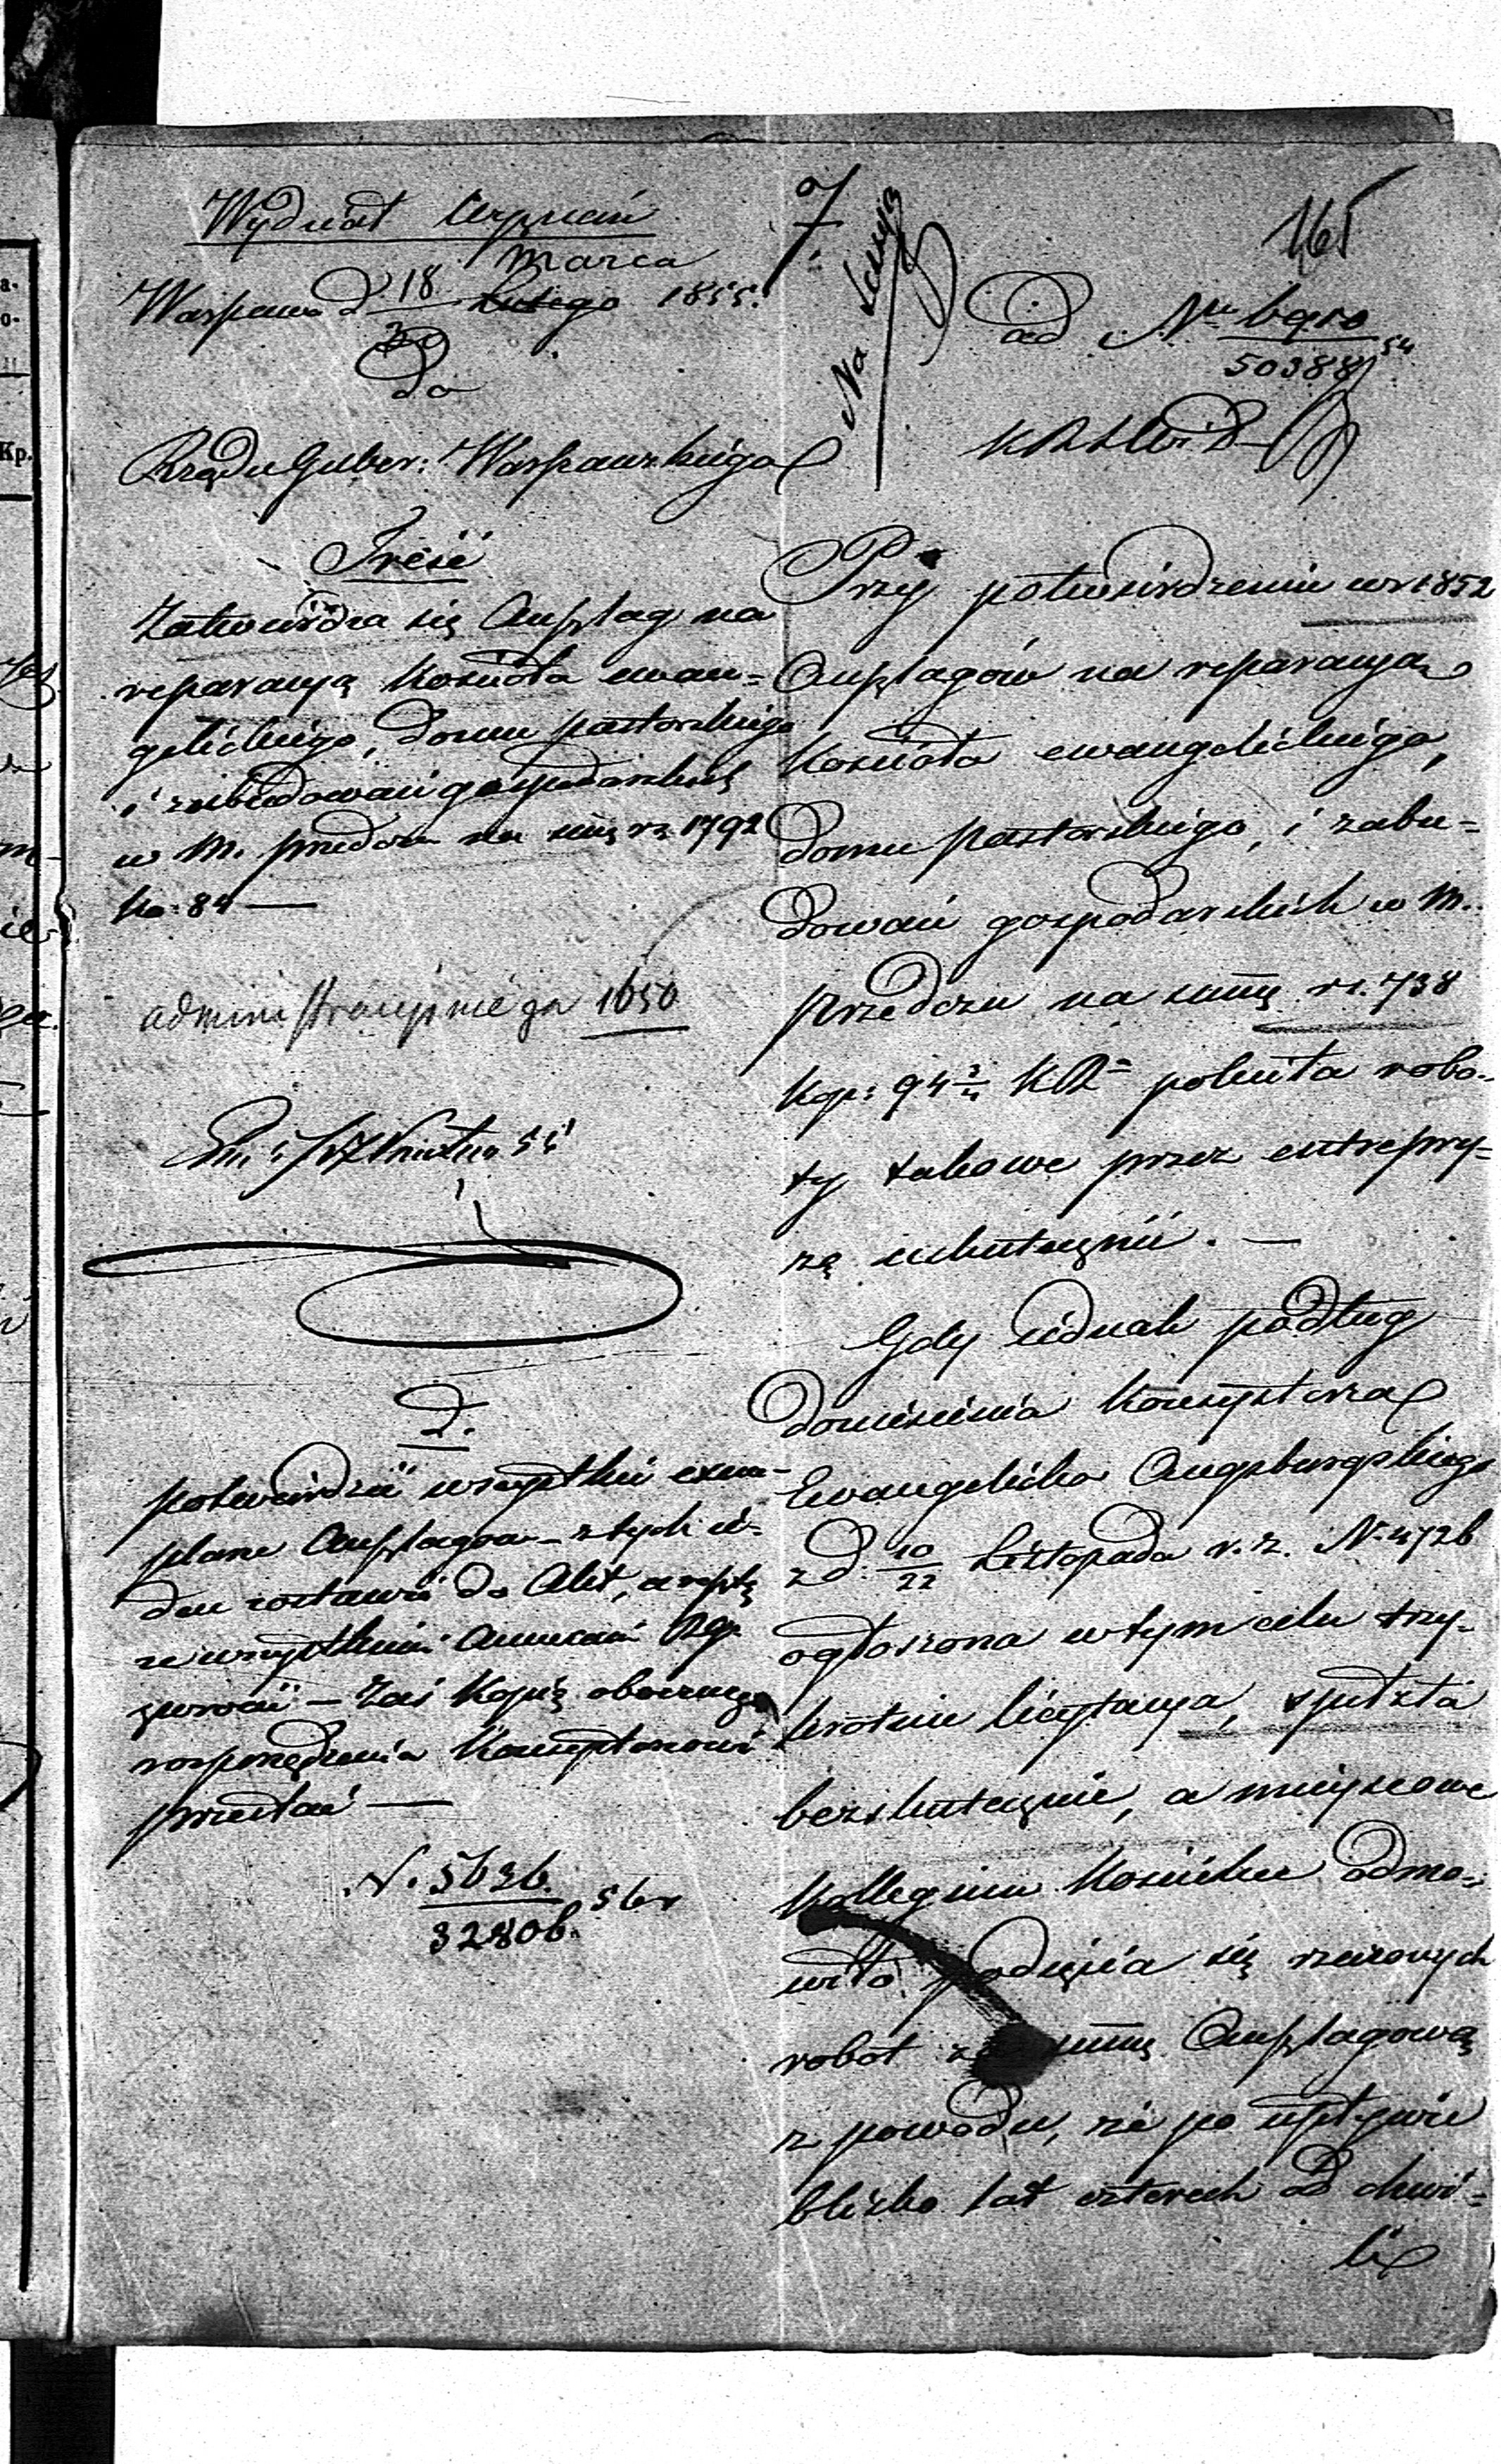 Wydział Wyznań
Marca
Warszawa d. 18/30 Lutego 1855.
Do
Rządu Guber: Warszawskiego
Treść
Zatwierdza się Anszlag na
reparacyą Kościoła ewan=
gelickiego, domu pastorskiego
i zabudowań gospodarskich
w M. Przedczu na sumę rs 1792
ko: 84 —
administracyjnie za 1650
D.
potwierdzić wszystkie exem-
plarze Anszlagów – z tych je-
den zostawić do Akt, a resztę
ze wszystkiemi Annexami Rzgo
zwrócić – Zaś Kopię obecnego
rozporządzenia Konsystorzowi
przesłać —
N. 5636/32806. 56 r
7.
Na Sessyą
165
ad Nr 6910/50388/54
K R S W i D
Przy potwierdzeniu w r. 1852
Anszlagów na reparacyą
Kościoła ewangelickiego,
domu pastorskiego, i zabu=
dowań gospodarskich w M.
Przedczu na sumę rs. 738
Kop: 94 3/4 KR= poleciła robo-
ty takowe przez entrepry=
zą uskutecznić. —
Gdy jednak podług
doniesienia Konsystorza
Ewangelicko Augsburgskiego
z d. 10/22 Listopada r. z. N. 4726
ogłoszona w tym celu trzy=
krotnie licytacya, spełzła
bezskutecznie, a miejscowe
Kollegium Kościelne odmó=
wiło podjęcia się rzeczonych
robot za sumę Anszlagową
z powodu, że po upływie
blizko lat czterech od chwi=
li